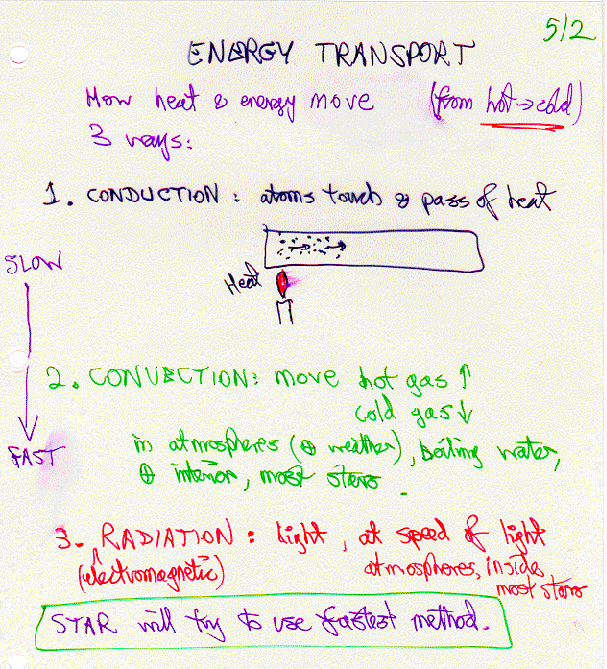 5/2
ENERGY TRANSPORT
How heat & energy move (from hot → cold)
3 ways:
1. CONDUCTION : atoms touch & pass of heat
SLOW
Heat
2. CONVECTION: move hot gas ↑
cold gas ↓
in atmospheres (⊕ weather), boiling water,
FAST
⊕ interior, most stars.
3. RADIATION : light, at speed of light
(electromagnetic) atmospheres, inside
most stars
STAR will try to use fastest method.